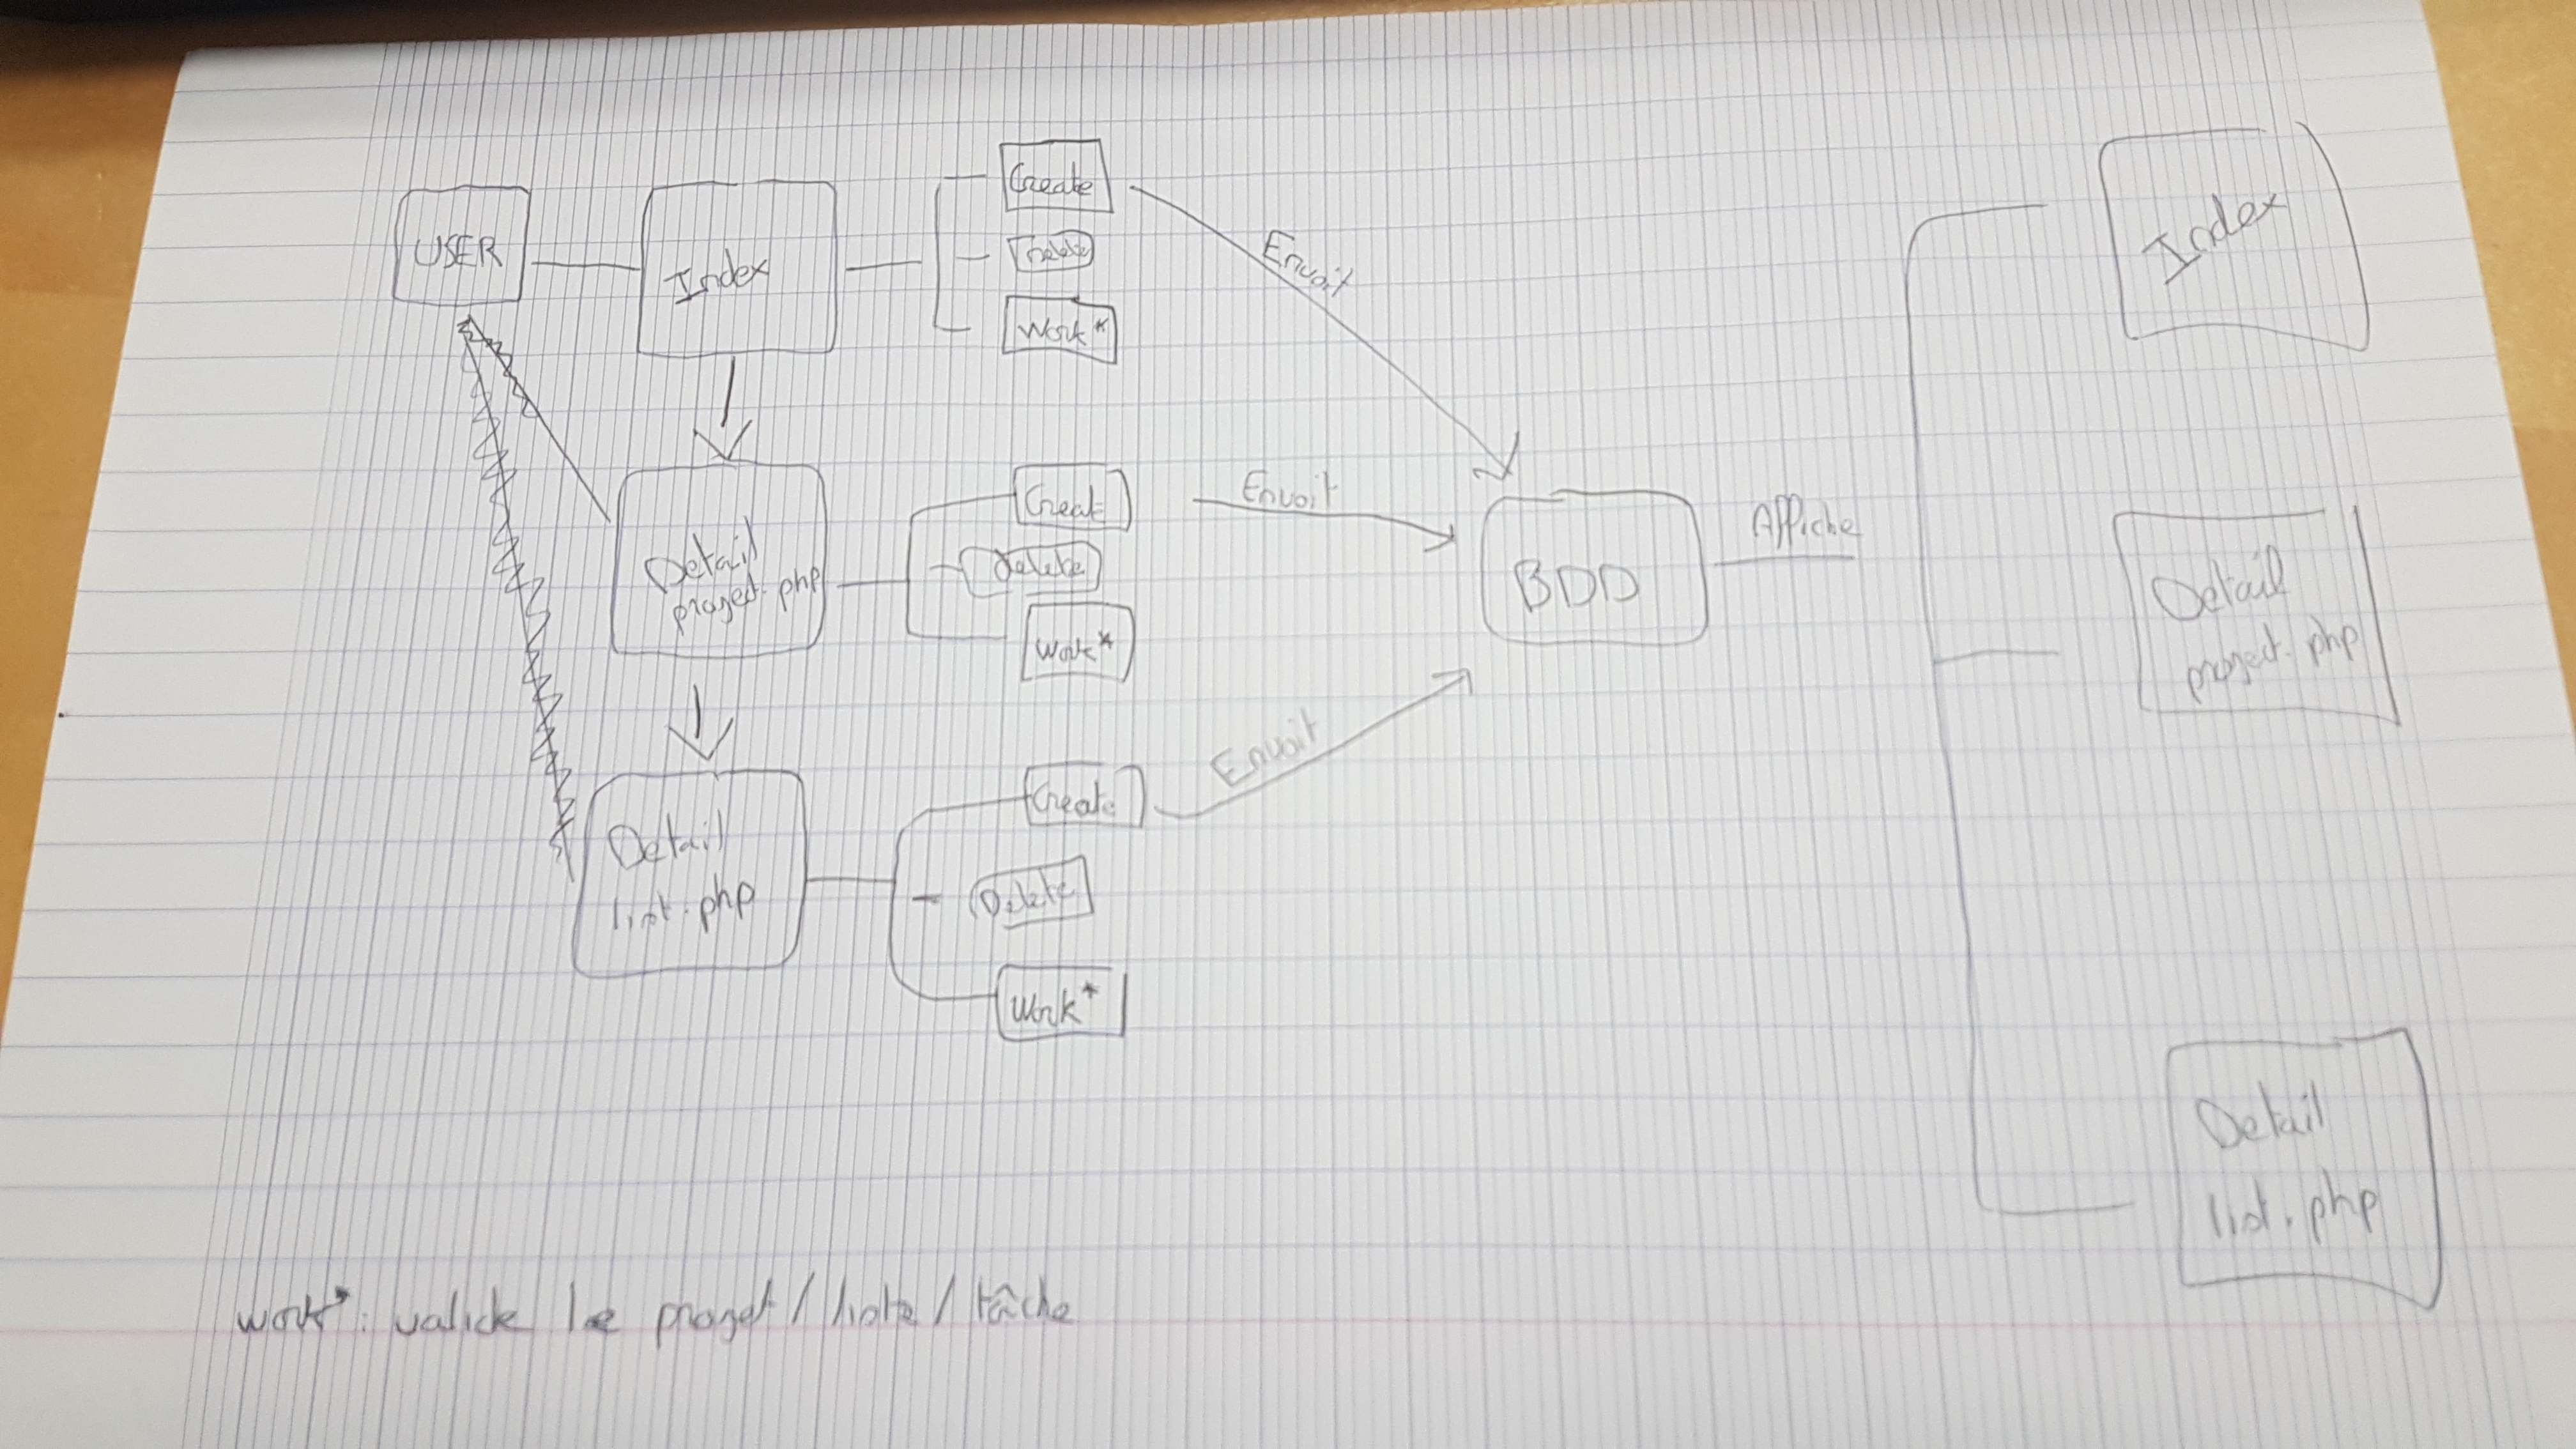 USER
Index
Create
Delete
Work*
Envoit
Detail
projet.php
Creat
Delete
Work*
Envoit
Detail
list.php
Create
Delete
Work*
Envoit
BDD
Affiche
Index
Detail
projet.php
Detail
list.php
work* : valide le projet / liste / tâche